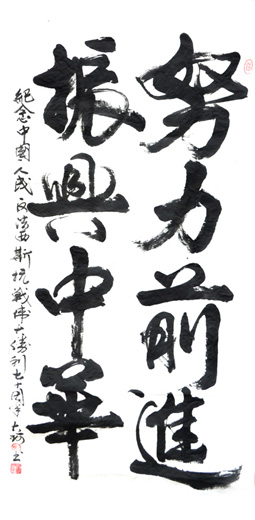 努力前進
振興中華
紀念中國人民反法西斯抗戰偉大勝利七十周年 大 書